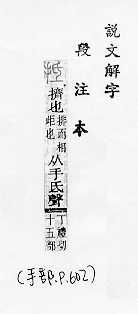 說文解字
段注本
抵 擠也 排而相歫也 从手氐聲 丁禮切 十五部
(手部.P.602)